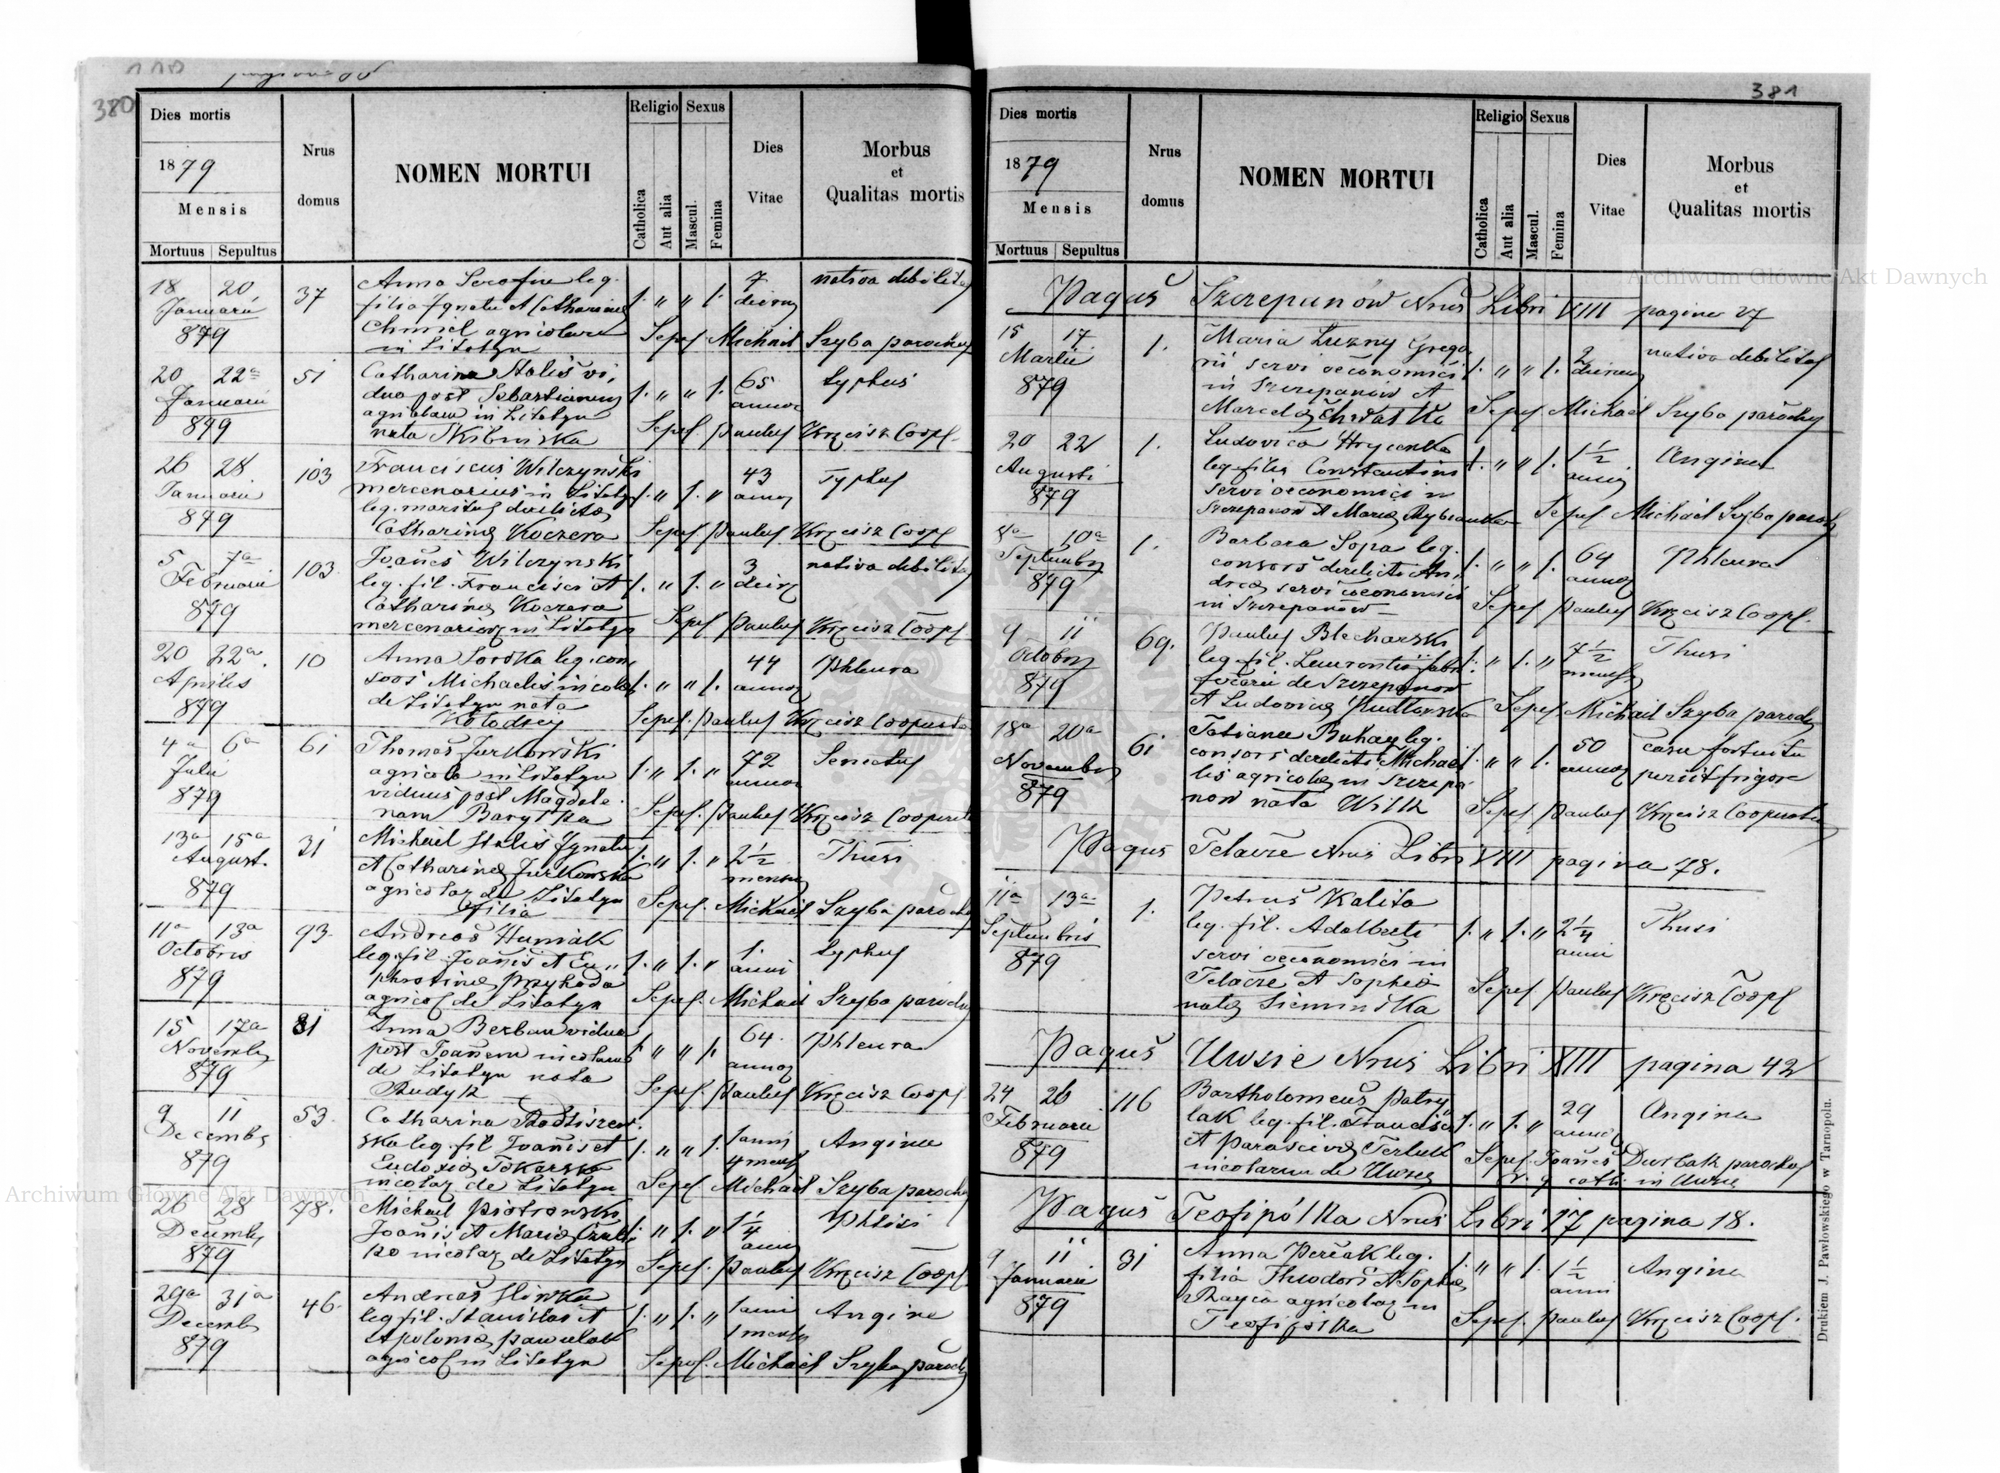 380
Dies mortis
1879
Mensis
Mortuus Sepultus
Nrus
domus
NOMEN MORTUI
Religio
Catholica
Aut alia
Sexus
Mascul.
Femina
Dies
Vitae
Morbus
et
Qualitas mortis
18 20
Januarii
879
37
filia Ignatii et Catharinae
Chmiel agricolarum
in Litatyn
1. " " 1.
7
dierum
nativa debilitas
Sepel. Michael Szyba parochus
20 22a
Januarii
879
51
Catharina Stalis vi,
dua post Sebastianum
agricolam in Litatyn
nata Skibinska
1. " " 1.
65
annor
Typhus
Sepel. Paulus Kręcisz Coopl.
26 28
Januarii
879
103
Franciscus Wilczynski
mercenarius in Litatyn
leg. maritus derelictae
Catharinae Koczera
1. " 1. "
43
annor
Typhus
Sepel. Paulus Kręcisz Coopl
5 7a
Februarii
879
103.
Joañes Wilczynski
leg. fil. Francisci et
Catharinae Koczera
mercenarior in Litatyn
1. " 1. "
3
dierum
nativa debilitas
Sepel. Paulus Kręcisz Coopl
20 22a.
Aprilis
879
10
Anna Soroka leg. con
sors Michaelis incolae
de Litatyn nata
Kołodzey
1. " " 1.
44
annor
Phleura
Sepel. Paulus Kręcisz Cooperator
4a 6a
Julii
879
61
Thomas Jurkowski
agricola in Litatyn
viduus post Magdale
nam Barylka
1. " 1. "
72
annor
Senectus
Sepel. Paulus Kręcisz Cooperator
13a 15a
August.
879
31
Michael Stalis Ignatii
et Catharinae Jurkowska
agricolar de Litatyn
filia
1. " 1. "
2½
mensis
Thusi
Sepel. Michael Szyba parochus
11a 13a
Octobris
879
93.
Andreas Humiak
leg. fil. Joañis et Eu"
phrosinae Przykoda
agricol de Litatyn
1. " 1. "
1.
anni
Typhus
Sepel. Michael Szyba parochus
15 17a
Novembr
879
31
Anna Berban vidua
post Joañem incolam
de Litatyn nata
Rudyk
1. " " 1.
64.
annor
Phleura
Sepel. Paulus Kręcisz Coopl
9 11
Decembr
879
53.
Catharina
ska leg. fil Joañis et
Eudoxiae Tokarska
incolar de Litatyn
1. " " 1.
1 anni
4 mens
Angina
Sepel Michael Szyba parochus
26 28
Decembr
879
78.
Michael Piotrowski
Joañis et Mariae
incolar de Litatyn
1. " 1. "
1¼
anni
Phtisi
Sepel. Paulus Kręcisz Coopl
29a 31a
Decemb
879
46.
Andreas Sliwka
leg fil. Stanislai et
Apoloniae Pawulak
agricol in Litatyn
1. " 1. "
1 anni
1 mensis
Angina
Sepel. Michael Szyba parochus
381
Dies mortis
1879
Mensis
Mortuus Sepultus
Nrus
domus
NOMEN MORTUI
Religio
Catholica
Aut alia
Sexus
Mascul.
Femina
Dies
Vitae
Morbus
et
Qualitas mortis
Pagus Szczepanów Nrus Libri VIII pagina 27
15 17.
Martii
879
1.
Maria Luzny Grego
rii servi oeconomici
in Szczepanów et
1. " " 1.
2
dierum
nativa debilitas
Sepel. Michael Szyba parochus
20 22
Augusti
879
1.
Ludovica Hrycenko
leg. filia Constantini
servi oeconomici in
Szczepanow et Mariae
1. " " 1.
1½
anni
Angina
Sepel Michael Szyba paroch
8a 10a
Septembr
879
1.
Barbara Sopra leg.
consors derelicti An,
dreae servi oeconomici
in Szczepanów
1. " " 1.
64
annor
Phleura
Sepel Paulus Kręcisz Coopl.
9 11
Octobr
879
69.
Paulus Blecharski
leg. fil. Laurentii fabri
ferarii de Szczepanow
et Ludovicae
1. " 1. "
7½
mensis
Thusi
Sepel. Michael Szyba paroch
18a 20a
Novembr
879
61
Tatianna Buhay leg.
consors derelicti Michae
lis agricolae in Szczepa
now nata Wilk
1. " " 1.
50
annor
casu fortuitu
periit frigore
Sepel Paulus Kręcisz Cooperator
Pagus Telacze Nrus Libri VIII pagina 78.
11a 13a
Septembris
879
1.
Petrus Kalita
leg. fil. Adalberti
servi oeconomici in
Telacze et Sophiae
natae Sieminska
1. " 1. "
2¼
anni
Thusi
Sepel Paulus Kręcisz Coopl
Pagus Uwsie Nrus Libri XIII pagina 42
24 26
Februarii
879
116
Bartholomeus Patry
lak leg. fil. Francisci
et Parascivae Terluk
incolarum de Uwsie
1. " 1. "
29
annor
Angina
Sepel. Joañes Durbak parochus
r. g. cath. in Uwsie
Pagus Teofipólka Nrus Libri 17 pagina 18.
9 11
Januarii
879
31
Anna Perčak leg.
filia Theodori et Sophiae
Rayca agricolar in
Teofipolka
1. " " 1.
1½
anni
Angina
Sepel. Paulus Kręcisz Coopl.
Drukiem J. Pawłowskiego w Tarnopolu.
Archiwum Główne Akt Dawnych
Archiwum Główne Akt Dawnych